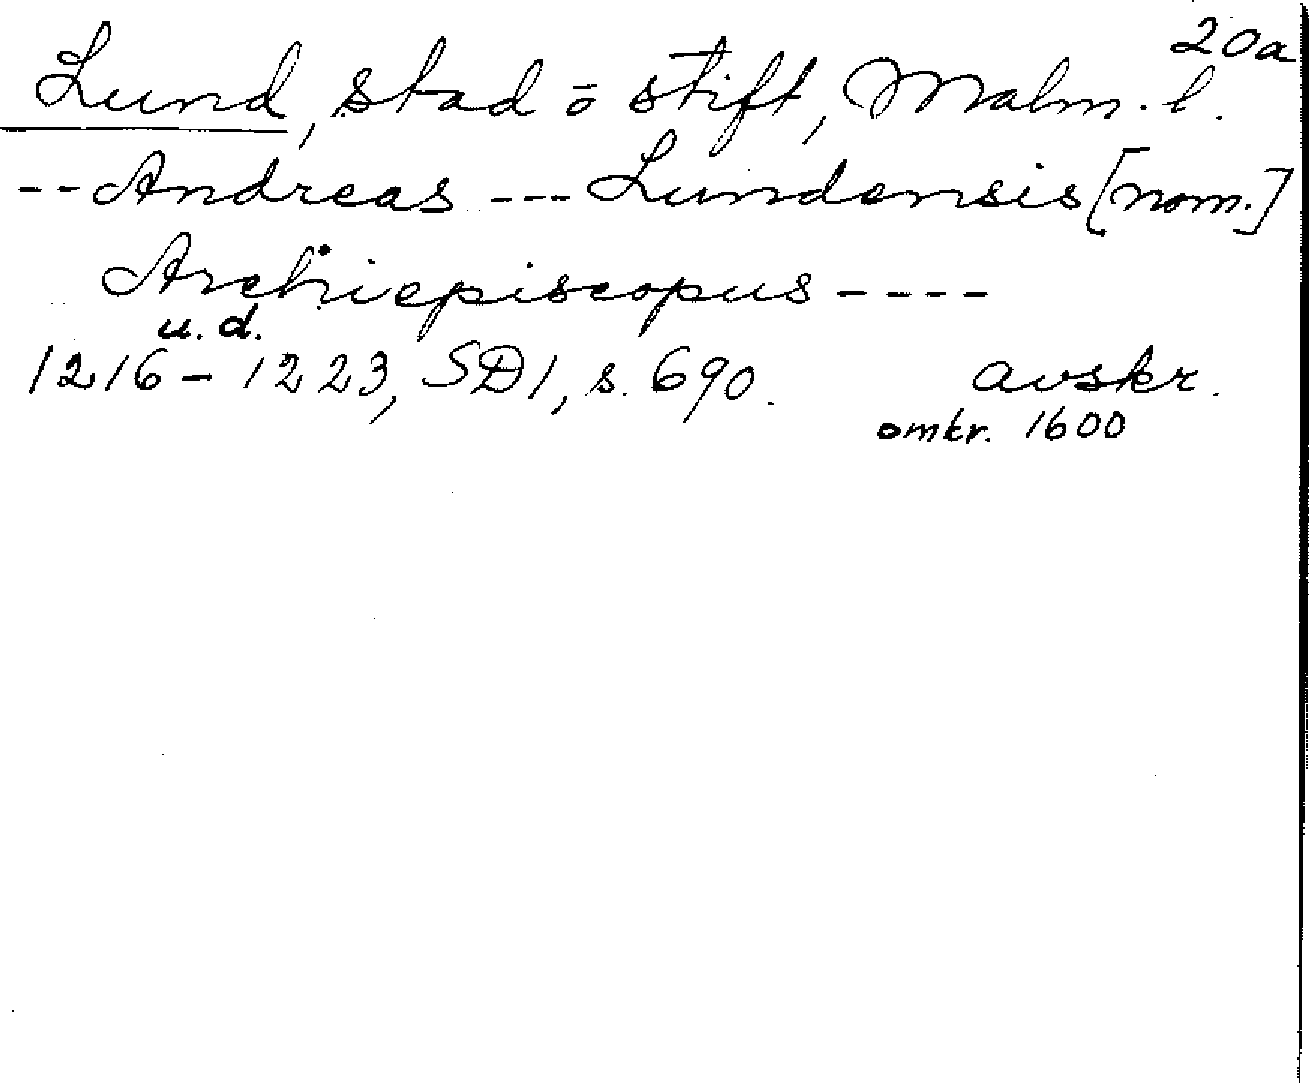 20a
Lund, stad o stift, Malm. l.
-- Andreas --- Lundensis [nom.]
Archiepiscopus ----
u. d.
1216 - 1223, SD1, s. 690. avskr.
omkr. 1600